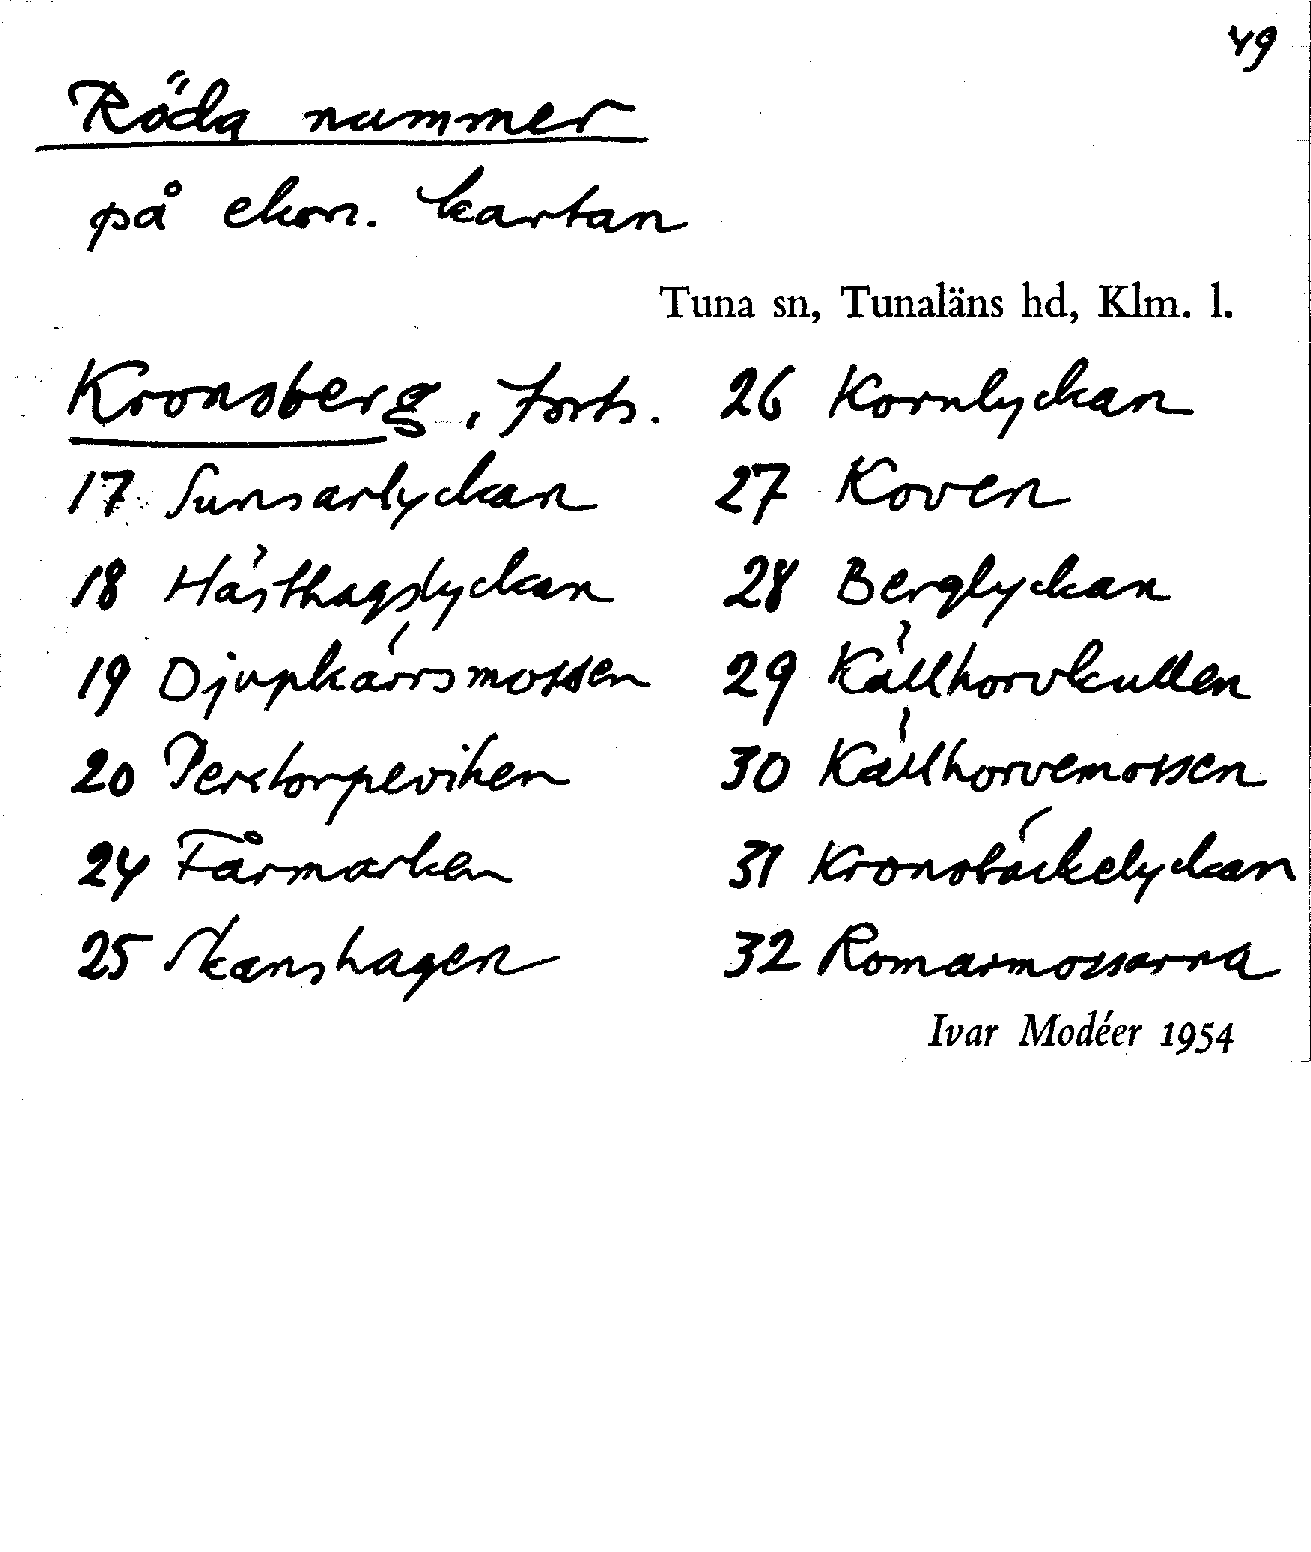 49
Röda nummer
på ekon. kartan
Tuna sn, Tunaläns hd, Klm. l.
Kronoberg, forts.
17 Sunsarlyckan
18 Hästhagslyckan
19 Djupkärrsmossen
20 Perstorpeviken
24 Fårmarken
25 Skanshagen
26 Kornlyckan
27 Koven
28 Berglyckan
29 Källhorvkullen
30 Källhorvemossen
31 Kronobäckelyckan
32 Romarmossarna
Ivar Modéer 1954